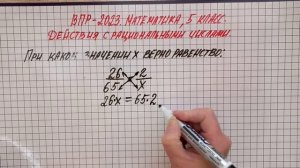 ВПР-2023. МАТЕМАТИКА, 5 КЛАСС.
ДЕЙСТВИЯ С РАЦИОНАЛЬНЫМИ ЧИСЛАМИ.
ПРИ КАКОМ ЗНАЧЕНИИ X ВЕРНО РАВЕНСТВО:
26 2
65 X
26·X = 65·2